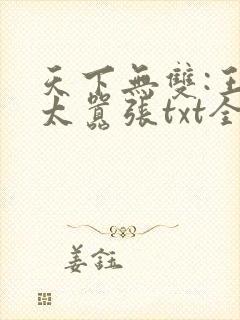 天下無雙:王
太囂張txt全
姜鈺